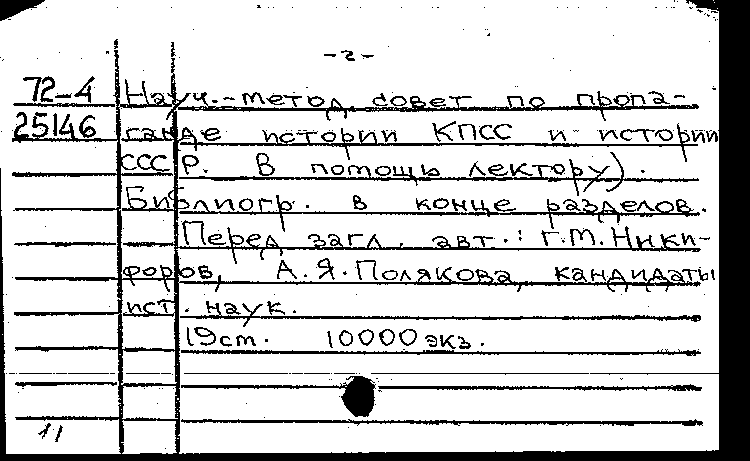 -2-
72-4 Науч.-метод. совет по пропа-
25146 ганде истории КПСС и истории
СССР. В помощь лектору).
Библиогр. в конце разделов.
Перед загл. авт.: Г.М. Ники-
форов, А.Я. Полякова, кандидаты
ист. наук.
19см. 10000 экз.
11